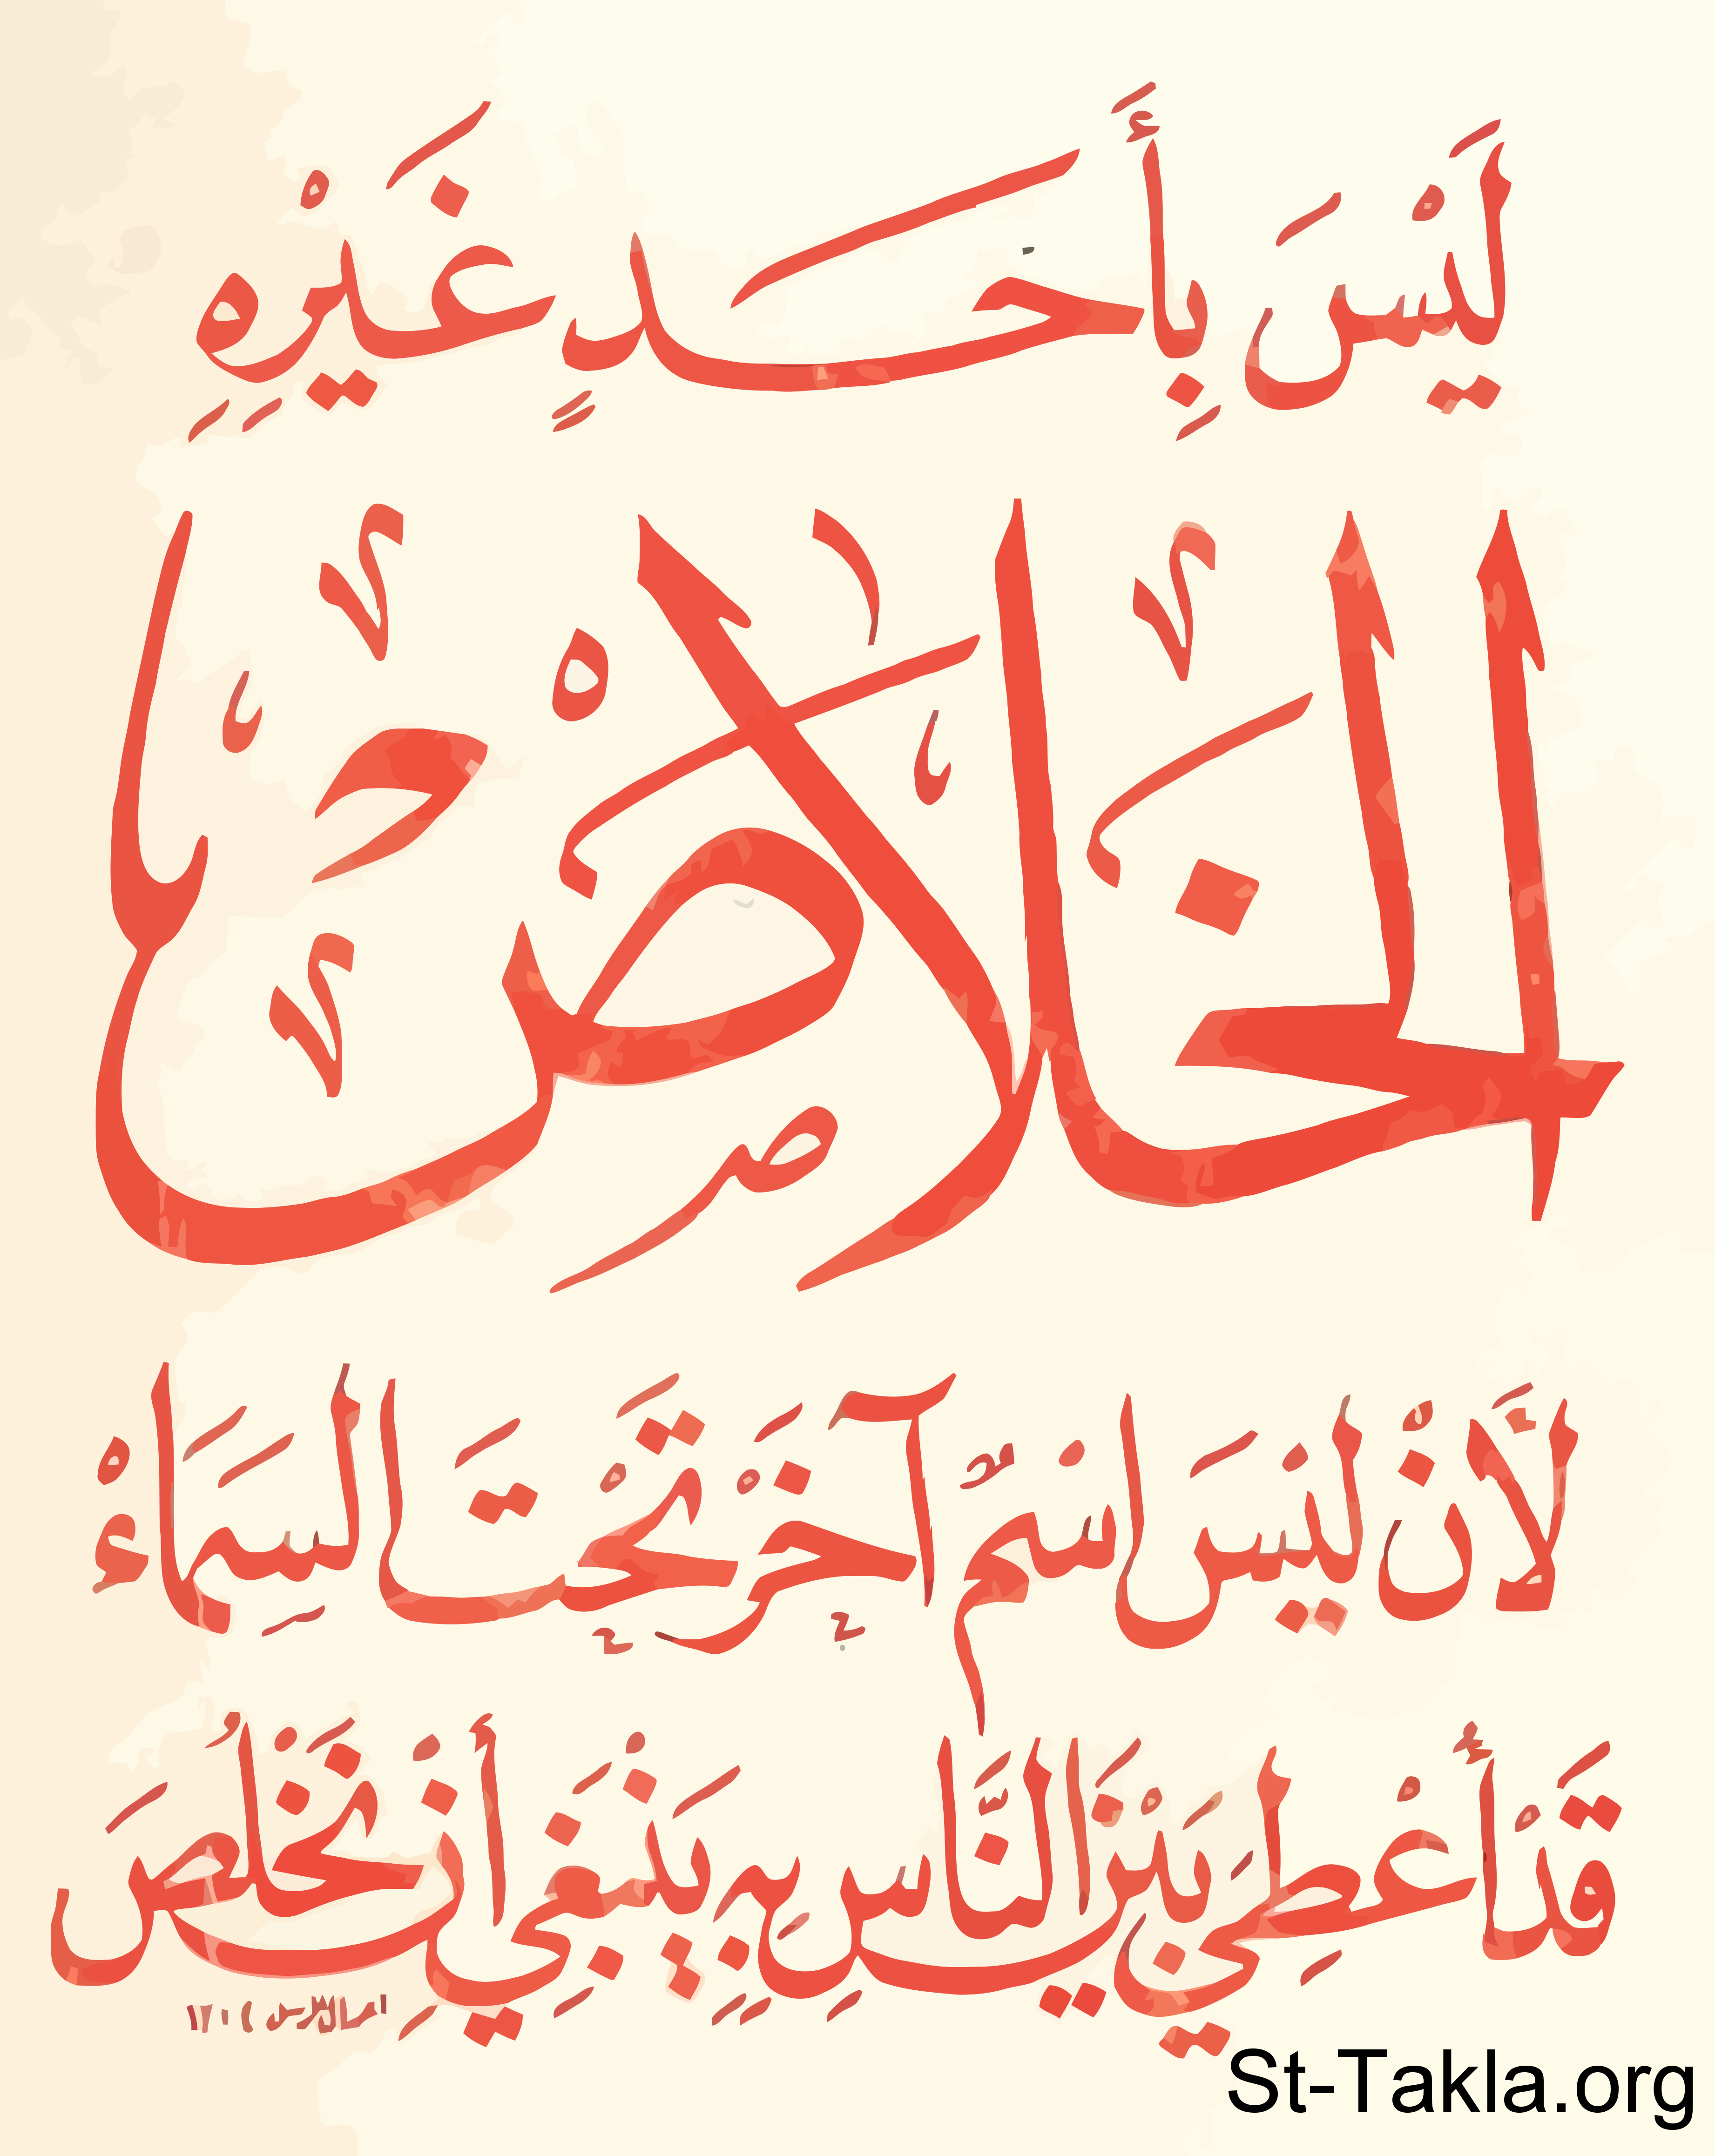 لَيْسَ بِأَحَدٍ غَيْرِهِ
الخَلَاصُ
لأَنْ لَيْسَ اسْمٌ آخَرْ تَحْتَ السَّمَاءْ
قَدْ أُعْطِيَ بَيْنَ النَّاسِ بِهِ يَنْبَغِي أَنْ نَخْلُصَ
St-Takla.org